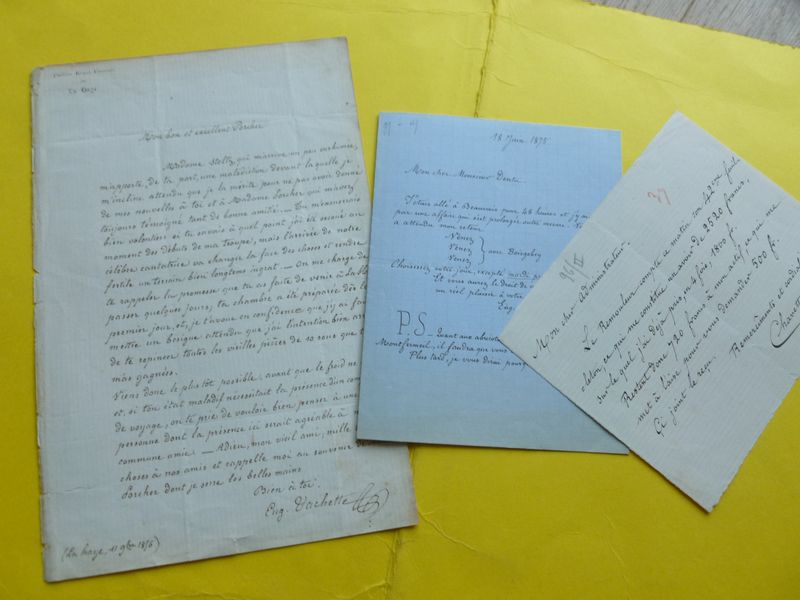 Théâtre Royal Français
de
La Haye
Mon bon et excellent Porcher
Madame Stoltz, qui m'arrive un peu enrhumée,
m'apporte, de ta part, une malédiction devant laquelle je
m'incline attendu que je la mérite pour ne pas avoir donné
de mes nouvelles à toi et à Madame Porcher qui m'avez
toujours témoigné tant de bonne amitié. — Tu m'excuserais
bien volontiers si tu savais à quel point j'ai été secoué au
moment des débuts de ma troupe, mais l'arrivée de notre
célèbre cantatrice va changer la face des choses et rendre
fertile un terrain bien longtems ingrat. — On me charge de
te rappeler la promesse que tu as faite de venir à La H
passer quelques jours, ta chambre a été préparée dès le
premier jour, et, je t'avoue en confidence que j'y ai fait
mettre un besigue attendu que j'ai l'intention bien arr
de te repincer toutes les vieilles pièces de 10 sous que t
m'as gagnées.
Viens donc le plus tôt possible, avant que le froid ne
et, si ton état maladif nécessitait la présence d'un com
de voyage, on te prie de vouloir bien penser à une
personne dont la présence ici serait agréable à n
commune amie. — Adieu, mon vieil ami, mille
choses à nos amis et rappelle moi au souvenir de
Porcher dont je serre les belles mains
Bien à toi.
Eug. Vachette
(La haye, 11 9bre 1875)
18 Juin 1875
Mon cher Monsieur Dentu
J'étais allé à Beauvais pour 48 heures et j'y ai
par une affaire qui s'est prolongée outre mesure.
a attendu mon retour
Venez
Venez } avec Boisgobey
Venez
Choisissez votre jour, excepté mardi
Et vous aurez le droit de
un réel plaisir à votre
Eug.
P.S — Quant aux
Montfermeil, il faudra que vous
Plus tard, je vous dirai pourq
37
96/II
Mon cher Administrateur.
Le Remouleur compte ce matin son 42e feuil
leton, ce qui me constitue un avoir de 2520 francs,
sur lequel j'ai déjà pris, en 4 fois, 1800 f.
Restent donc 720 francs à mon actif, ce qui me
met à l'aise pour vous demander 500 f.
Ci joint le reçu.
Remerciments et cordial
Chavette